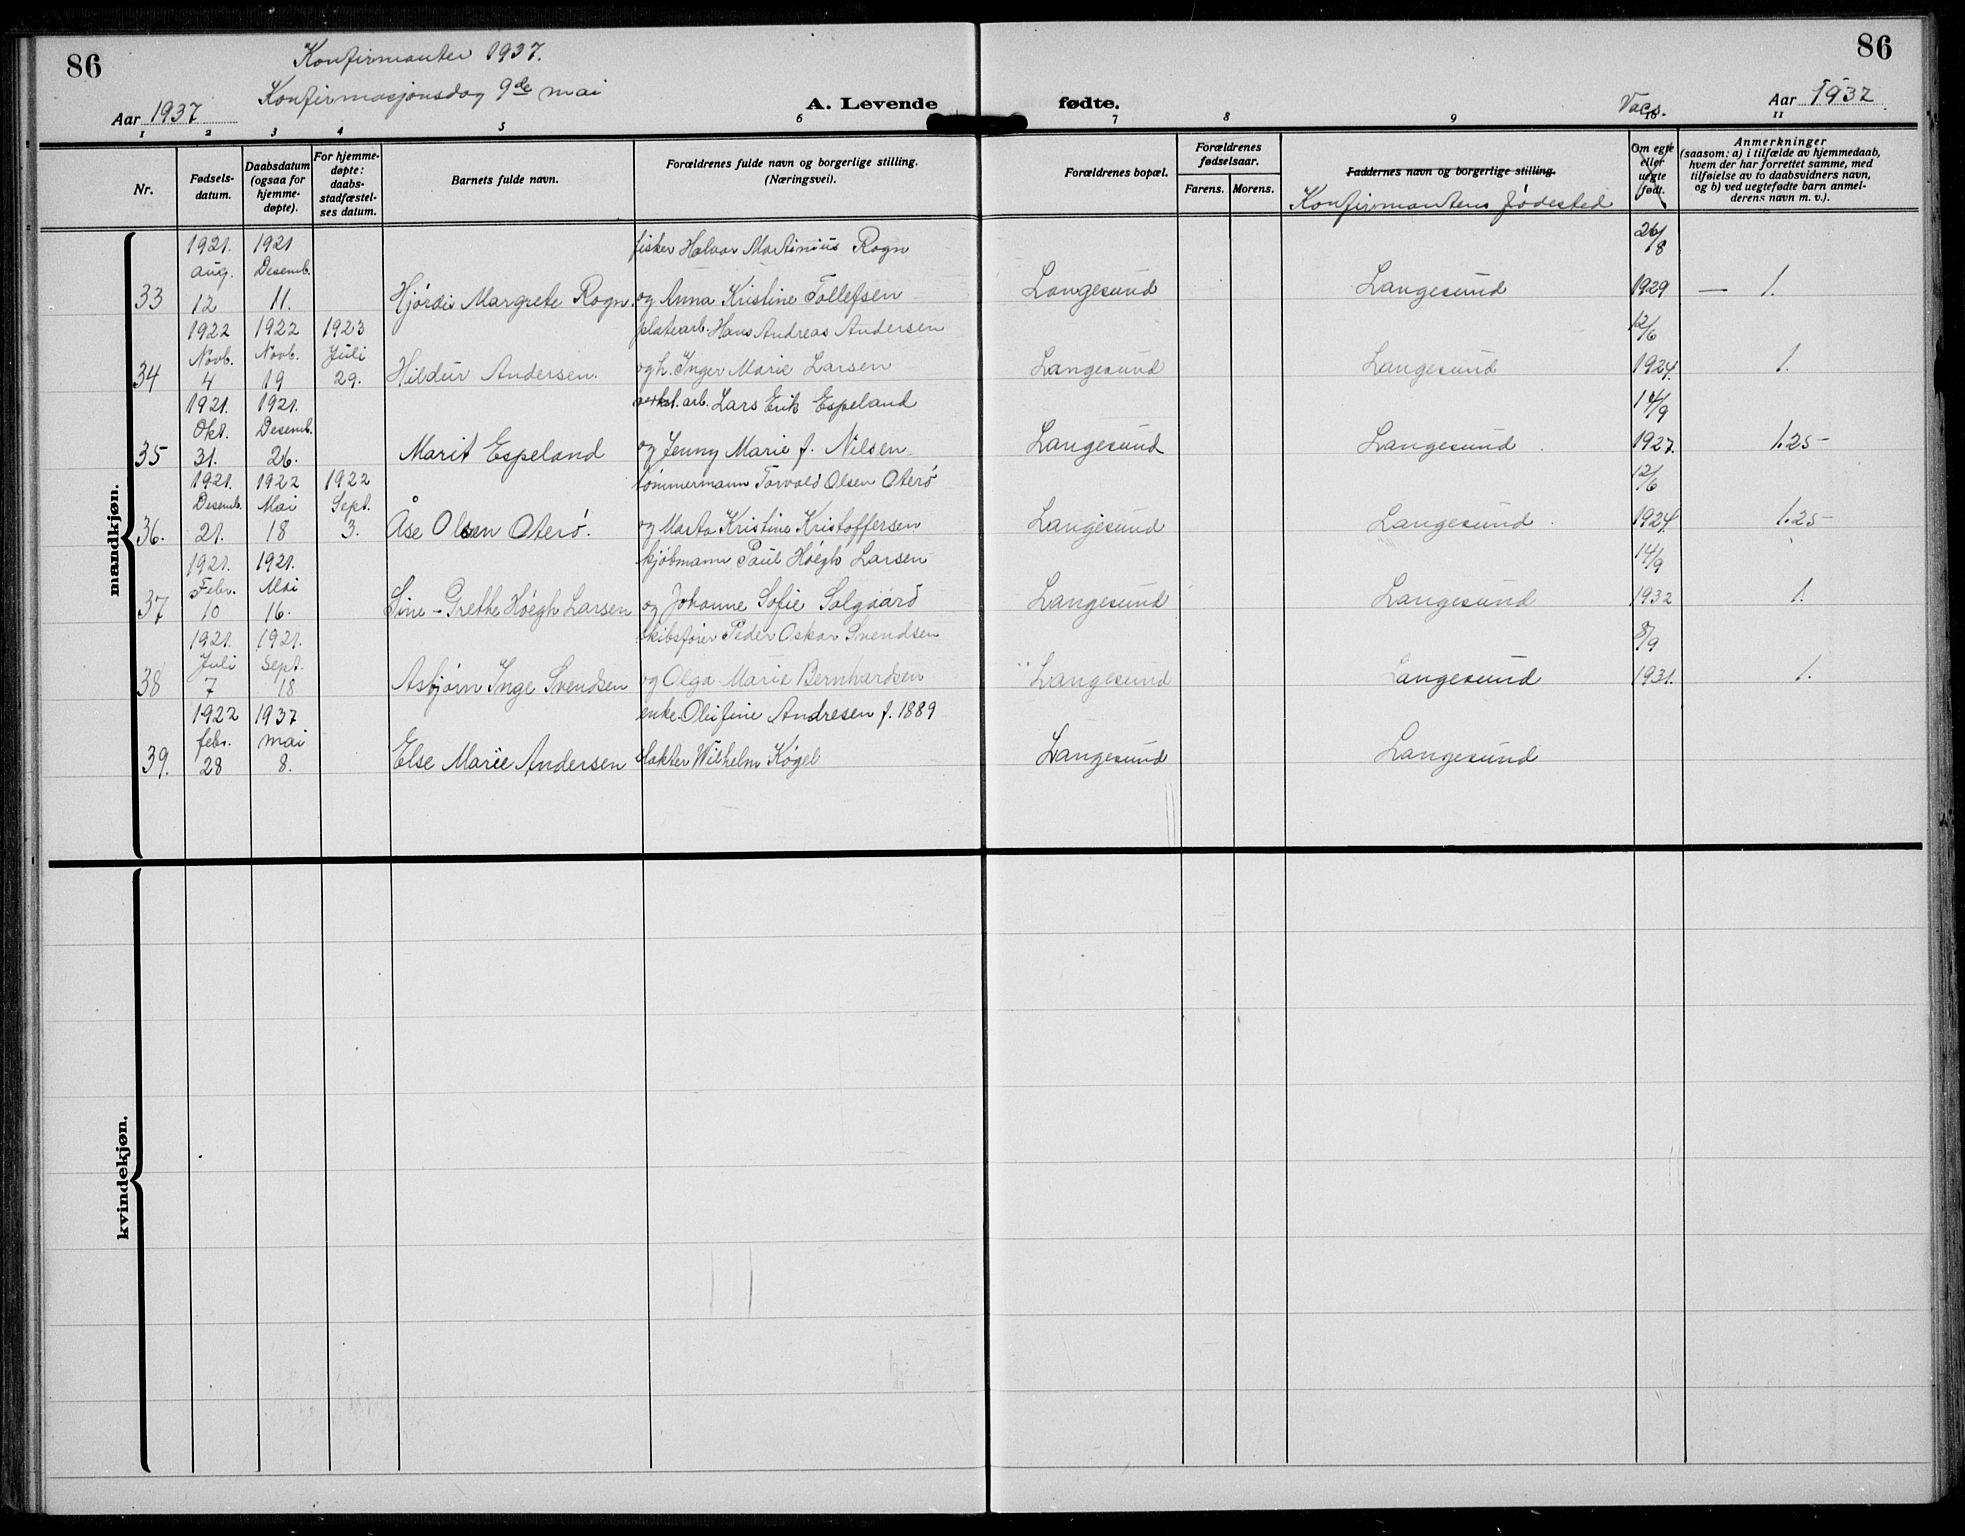 86
Konfirmanter 1937.
Konfirmasjonsdag 9de mai
Aar 1937
A. Levende fødte.
Vacs.
Aar 1937
86
1 2 3 4 5 6 7 8 9 10 11
Nr.
Fødsels-
datum.
Daabsdatum
(ogsaa for
hjemme-
døpte).
For hjemme-
døpte:
daabs-
stadfæstel-
ses datum.
Barnets fulde navn.
Forældrenes fulde navn og borgerlige stilling.
(Næringsvei).
Forældrenes bopæl.
Forældrenes
fødselsaar.
Farens. Morens.
Faddernes navn og borgerlige stilling.
Konfirmantens fødested
Om egte
eller
uegte
født.
Anmerkninger
(saasom: a) i tilfælde av hjemmedaab,
hvem der har forrettet samme, med
tilføielse av to daabsvidners navn,
og b) ved uegtefødte barn anmel-
derens navn m. v.).
mandkjøn.
1921. 1921 fisker Halvor Martinius Rogn 26/8
aug. Desemb.
33 12 11. Hjørdis Margrete Rogn. og Anna Kristine Tollefsen Langesund Langesund 1929 — 1.
1922 1922 1923 platearb. Hans Andreas Andersen 12/6
Novb. Novb. Juli
34 4 19 29. Hildur Andersen. og h. Inger Marie Larsen Langesund Langesund 1924. 1.
1921. 1921. verkst. arb. Lars Erik Espeland 14/9
Okt. Desemb.
35 31. 26. Marit Espeland og Jenny Marie f. Nilsen Langesund Langesund 1927. 1.25-
1921. 1922 1922 tømmermann Torvald Olsen Oterø 12/6
Desemb. Mai Sept.
36. 21. 18 3. Åse Olsen Oterø. og Marta Kristine Kristoffersen Langesund Langesund 1924. 1.25-
1921. 1921. kjøbmann Paul Høegh Larsen 14/9
Febr. Mai
37 10 16. Sine-Grethe Høegh Larsen og Johanne Sofie Solgaard Langesund Langesund 1932 1.
1921. 1921. skibsfører Peder Oskar Svendsen 8/9
Juli Sept.
38 7 18 Asbjørn Inge Svendsen og Olga Marie Bernhardsen Langesund Langesund 1931. 1.
1922 1937 enke Olufine Andresen f. 1889
febr. mai
39. 28 8. Else Marie Andersen slakter Wilhelm Køgel Langesund Langesund
kvindekjøn.